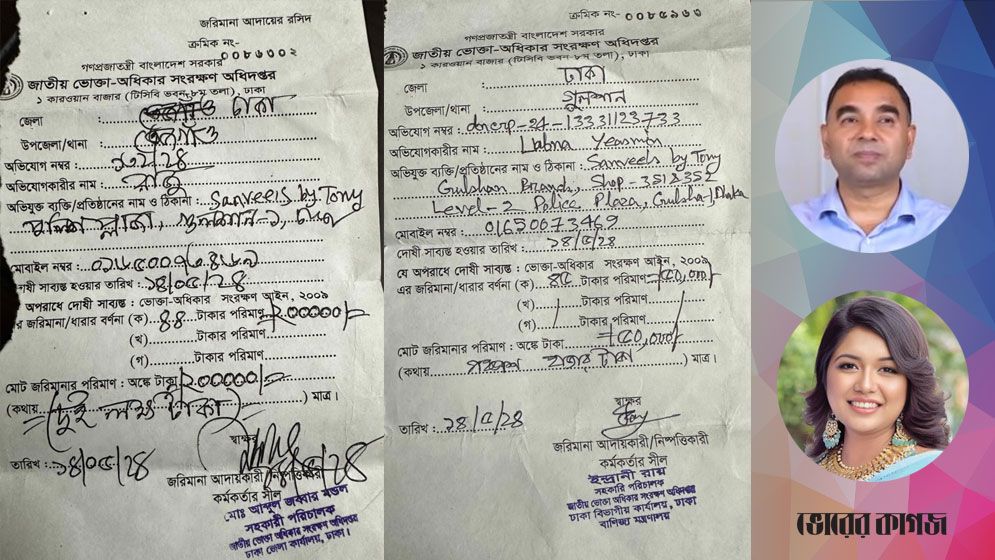 জরিমানা আদায়ের রসিদ
ক্রমিক নং- ০০৮৬৩০২
গণপ্রজাতন্ত্রী বাংলাদেশ সরকার
জাতীয় ভোক্তা-অধিকার সংরক্ষণ অধিদপ্তর
১ কারওয়ান বাজার (টিসিবি ভবন-৮ম তলা), ঢাকা
জেলা : ঢাকা
উপজেলা/থানা : তেজগাঁও
অভিযোগ নম্বর :
অভিযোগকারীর নাম : রাজু
অভিযুক্ত ব্যক্তি/প্রতিষ্ঠানের নাম ও ঠিকানা : Sanvees by Tony
প্লাজা, গুলশান-১, ঢাকা
মোবাইল নম্বর :
দোষী সাব্যস্ত হওয়ার তারিখ : ১৪/০৫/২৪
অপরাধে দোষী সাব্যস্ত : ভোক্তা-অধিকার সংরক্ষণ আইন, ২০০৯
র জরিমানা/ধারার বর্ণনা (ক) ৪৪ টাকার পরিমাণ ২০০০০০/=
(খ) টাকার পরিমাণ
(গ) টাকার পরিমাণ
মোট জরিমানার পরিমাণ : অঙ্কে টাকা ২০০০০০/=
(কথায় দুই লক্ষ টাকা) মাত্র।
স্বাক্ষর
তারিখ : ১৪/০৫/২৪
জরিমানা আদায়কারী/নিষ্পত্তিকারী
কর্মকর্তার সীল
মোঃ আব্দুল জব্বার মন্ডল
সহকারী পরিচালক
জাতীয় ভোক্তা অধিকার সংরক্ষণ অধিদপ্তর
ঢাকা জেলা কার্যালয়, ঢাকা।
ক্রমিক নং- ০০৮৫৯৬৩
গণপ্রজাতন্ত্রী বাংলাদেশ সরকার
জাতীয় ভোক্তা-অধিকার সংরক্ষণ অধিদপ্তর
১ কারওয়ান বাজার (টিসিবি ভবন-৮ম তলা), ঢাকা
জেলা : ঢাকা
উপজেলা/থানা : গুলশান
অভিযোগ নম্বর : dncrp-24-13331123733
অভিযোগকারীর নাম : Yeasmin
অভিযুক্ত ব্যক্তি/প্রতিষ্ঠানের নাম ও ঠিকানা : Sanvees by Tony
Gulshan Branch, Shop-351&352
Level-2 Police Plaza, Gulshan-1, Dhaka
মোবাইল নম্বর : 01650073469
দোষী সাব্যস্ত হওয়ার তারিখ : ১৪/৫/২৪
যে অপরাধে দোষী সাব্যস্ত : ভোক্তা-অধিকার সংরক্ষণ আইন, ২০০৯
এর জরিমানা/ধারার বর্ণনা (ক) ৪৫ টাকার পরিমাণ ৫০,০০০/
(খ) টাকার পরিমাণ
(গ) টাকার পরিমাণ
মোট জরিমানার পরিমাণ : অঙ্কে টাকা ৫০,০০০/
(কথায় পঞ্চাশ হাজার টাকা) মাত্র।
স্বাক্ষর
তারিখ : ১৪/৫/২৪
জরিমানা আদায়কারী/নিষ্পত্তিকারী
কর্মকর্তার সীল
ইন্দ্রানী রায়
সহকারি পরিচালক
জাতীয় ভোক্তা অধিকার সংরক্ষণ অধিদপ্তর
ঢাকা বিভাগীয় কার্যালয়, ঢাকা
বাণিজ্য মন্ত্রণালয়
ভোরের কাগজ